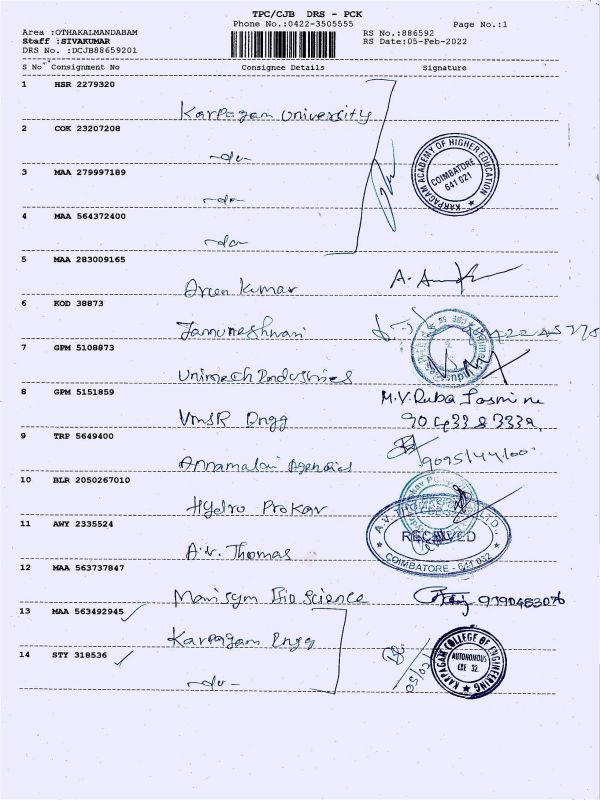 TPC/CJB DRS - PCK
Phone No.:0422-3505555
Page No.:1
Area :OTHAKALMANDABAM
Staff :SIVAKUMAR
DRS No. :DCJB88659201
RS No.:886592
RS Date:05-Feb-2022
S No Consignment No Consignee Details Signature
1 HSR 2279320
Karpagam University
2 COK 23207208
-do-
3 MAA 279997189
-do-
4 MAA 564372400
-do-
KARPAGAM ACADEMY OF HIGHER EDUCATION
COIMBATORE
641 021
5 MAA 283009165
Arun Kumar
6 KOD 38873
Jamuneshwari
7 GPM 5108873
Unimech Industries
8 GPM 5151859
M.V.Ruba Jasmine
VMSR Engg
9 TRP 5649400
Annamalai Agencies
10 BLR 2050267010
Hydro Prokav
11 AWY 2335524
A.V. Thomas
RECEIVED
COIMBATORE - 641 032
12 MAA 563737847
Manisym Bio Science
13 MAA 563492945
Karpagam Engg
14 STY 318536
-do-
KARPAGAM COLLEGE OF ENGINEERING
AUTONOMOUS
CBE 32